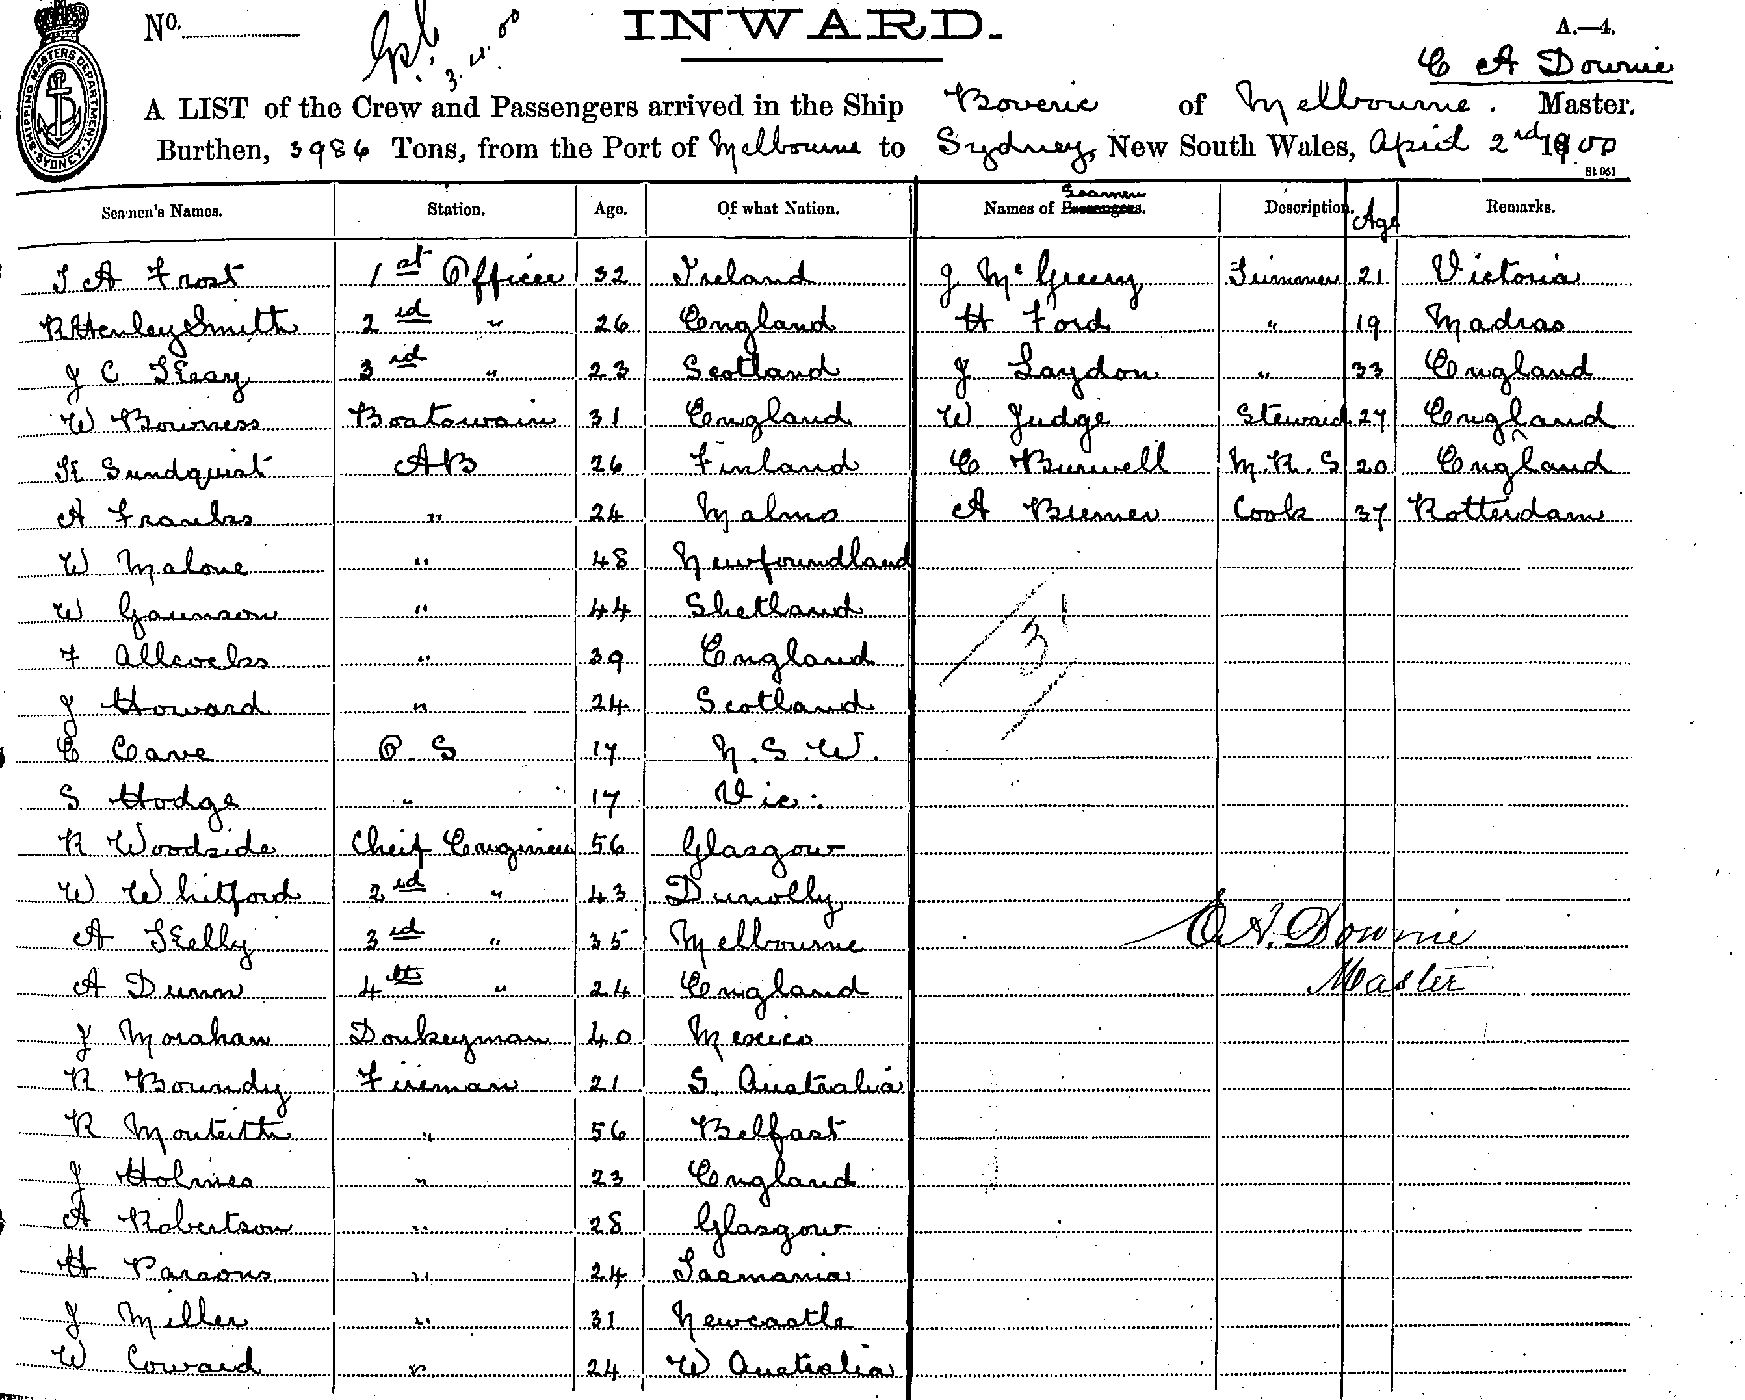 No. INWARD. A.—4.
C A Downie
A LIST of the Crew and Passengers arrived in the Ship Boveric of Melbourne. Master.
Burthen, 3986 Tons, from the Port of Melbourne to Sydney, New South Wales, April 2nd 1900
SHIPPING MASTERS DEPARTMENT. SYDNEY
Seamen's Names. Station. Age. Of what Nation. Names of Seamen Passengers. Description. Age Remarks.
T A Frost 1st Officer 32 Ireland J McGreery Trimmer 21 Victoria
R Henley Smith 2nd " 26 England H Ford " 19 Madras
J C Keay 3rd " 23 Scotland J Laydon " 33 England
W Bowness Boatswain 31 England W Judge Steward 27 England
K Sundquist AB 26 Finland C Burwell M.R.S 20 England
A Franks " 24 Malmo A Biemer Cook 37 Rotterdam
W Malone " 48 Newfoundland
W Gaunson " 44 Shetland
F Allcocks " 39 England
J Howard " 24 Scotland
C Cave O.S 17 N.S.W.
S Hodge " 17 Vic:
R Woodside Cheif Engineer 56 Glasgow
W Whitford 2nd " 43 Dunolly
A Kelly 3rd " 35 Melbourne C A. Downie
A Dunn 4th " 24 England Master
J Morahan Donkeyman 40 Mexico
R Boundy Fireman 21 S. Australia
R Monteith " 56 Belfast
J Holmes " 23 England
A Robertson " 28 Glasgow
H Parsons " 24 Tasmania
J Miller " 31 Newcastle
W Coward " 24 W Australia